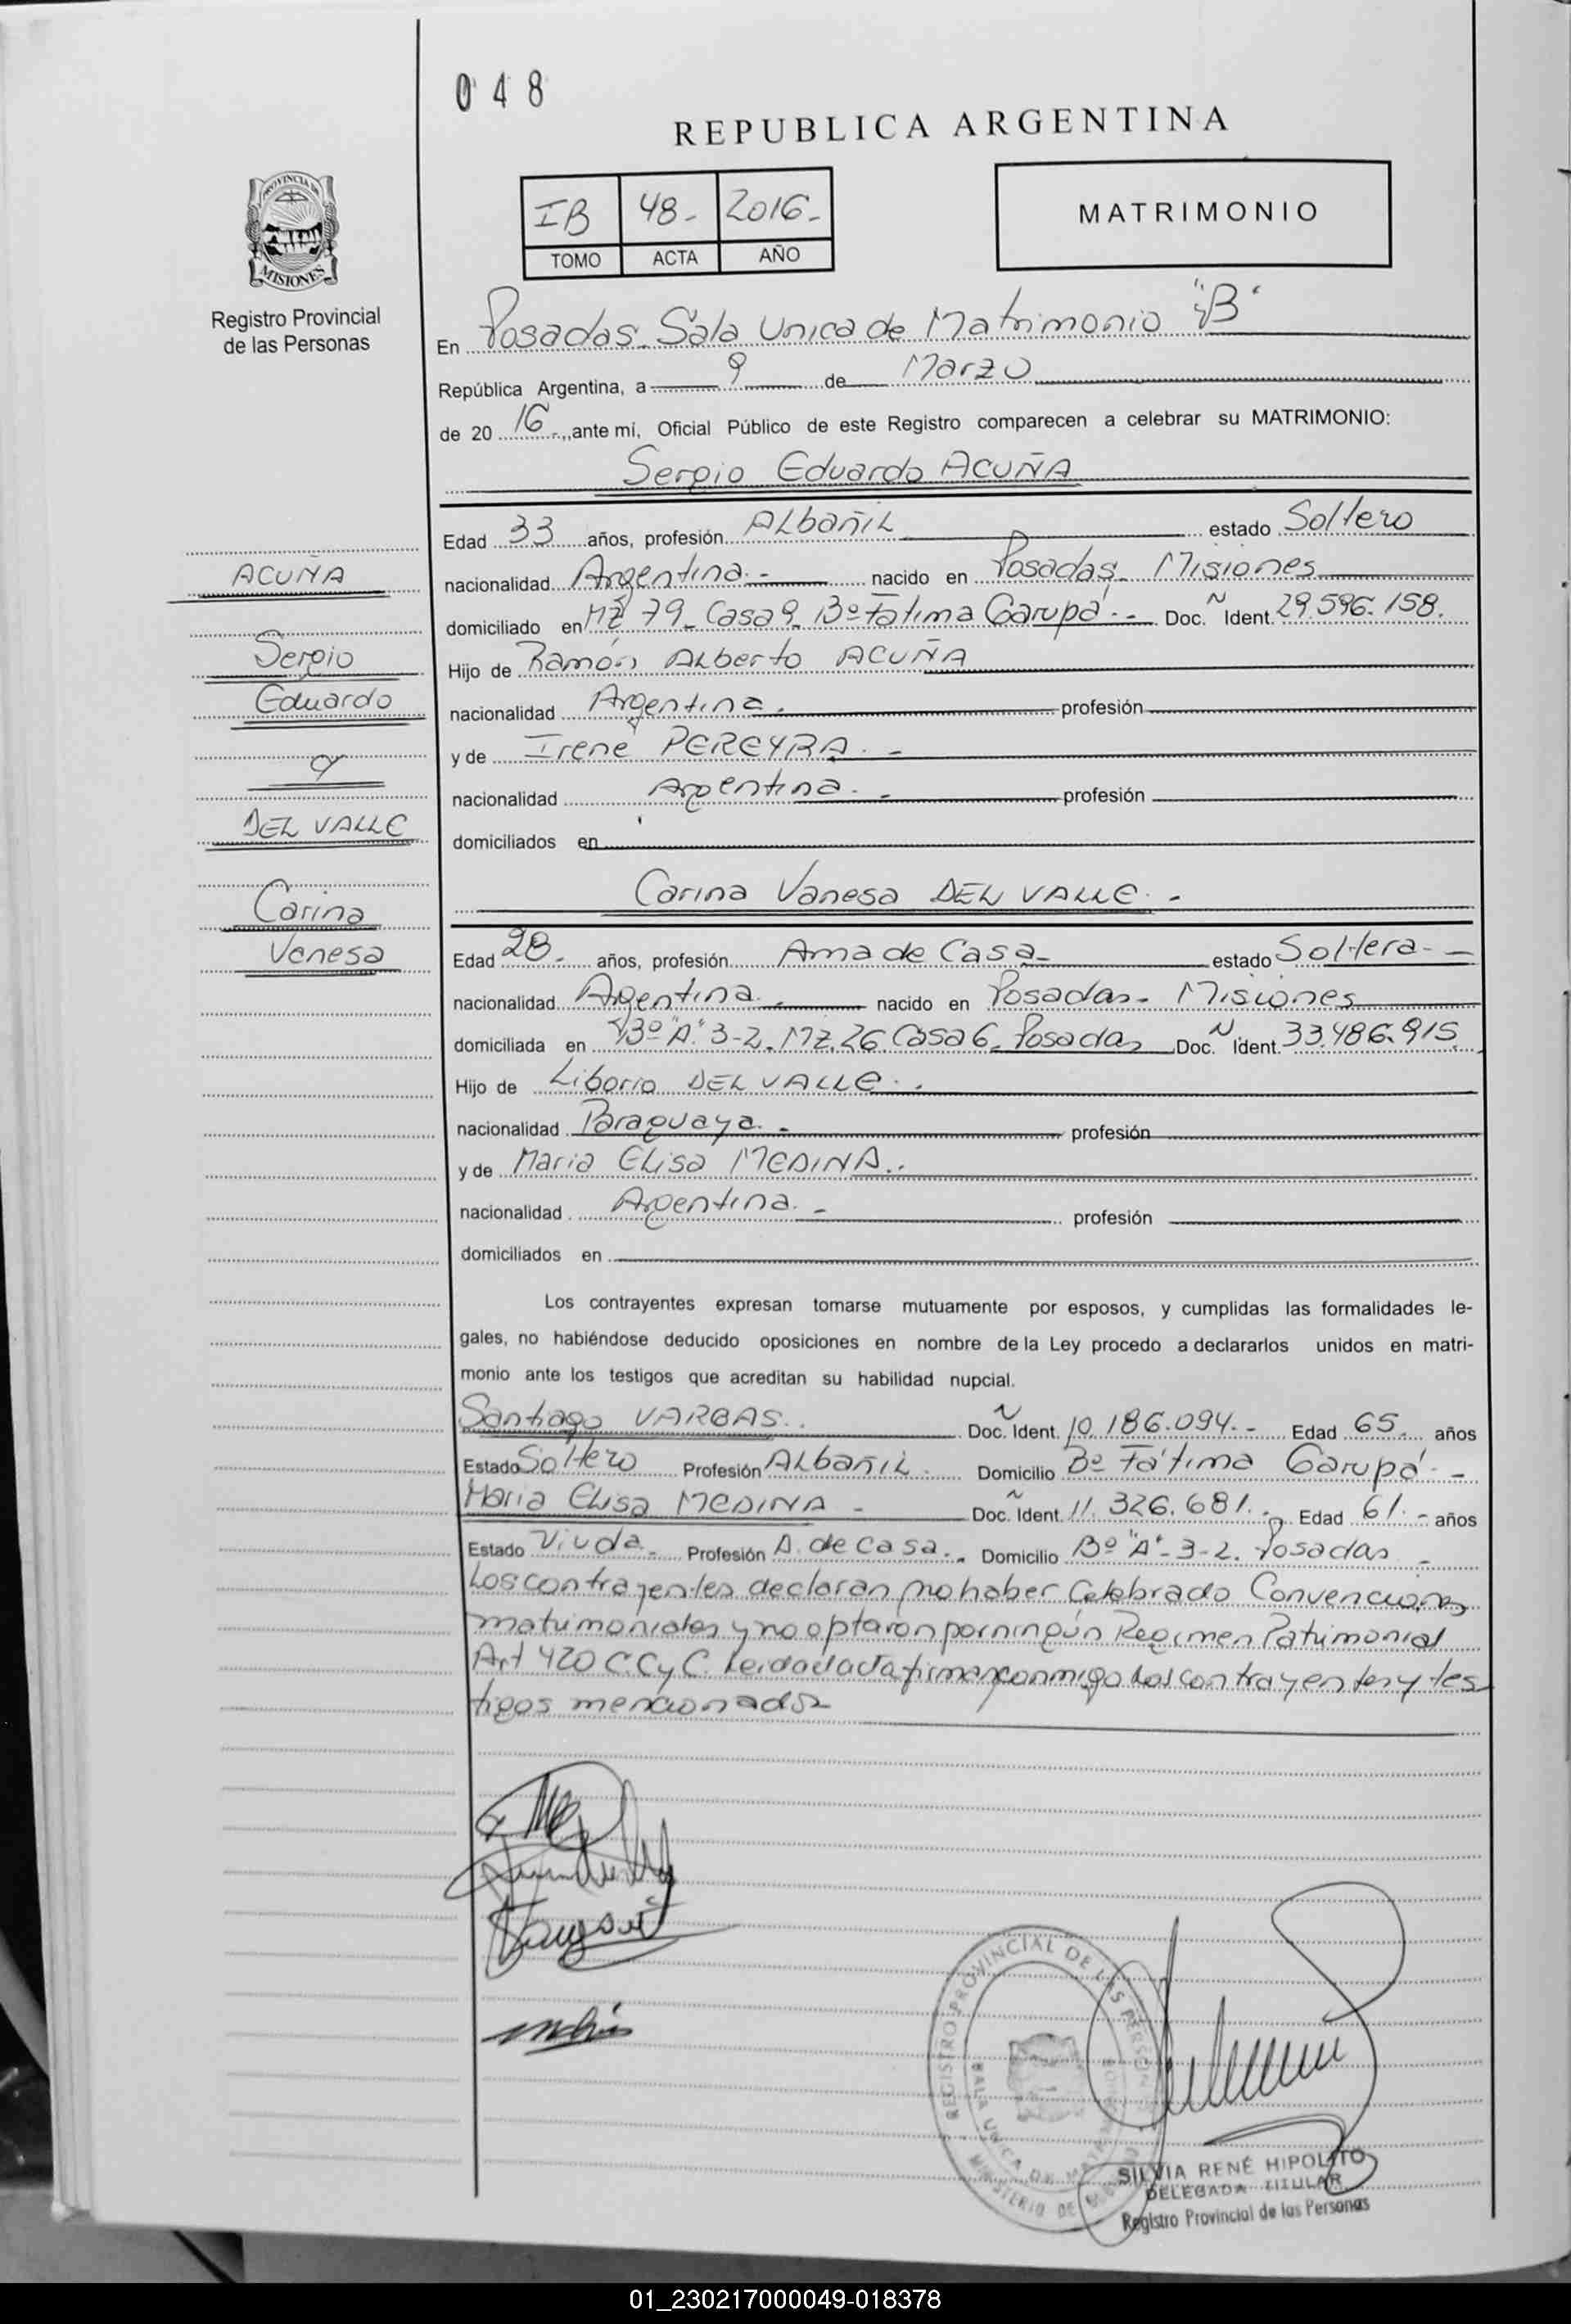 048
REPUBLICA ARGENTINA
IB 48- 2016-
TOMO ACTA AÑO
MATRIMONIO
PROVINCIA DE
MISIONES
Registro Provincial
de las Personas
En Posadas. Sala Unica de Matrimonio "B"
República Argentina, a 9 de Marzo
de 20 16 -,,ante mí, Oficial Público de este Registro comparecen a celebrar su MATRIMONIO:
Sergio Eduardo ACUÑA
Edad 33 años, profesión ALbañiL estado Soltero
ACUÑA
nacionalidad Argentina.- nacido en Posadas Misiones
domiciliado en MZ 79- Casa 9- Bº Fátima Garupá.- Doc. Ident. 29.596.158.
Sergio
Hijo de Ramón ALberto ACUÑA
Eduardo
nacionalidad Argentina. profesión
y
y de Irene PEREYRA.-
nacionalidad Argentina.- profesión
DEL VALLE
domiciliados en
Carina
Carina Vanesa DEL VALLE.-
Vanesa
Edad 28- años, profesión Ama de Casa- estado Soltera-
nacionalidad Argentina.- nacido en Posadas- Misiones
domiciliada en Bº "A" 3-2. MZ. 26. Casa 6- Posadas Doc. Ident. 33.486.915
Hijo de Liborio DEL VALLE..
nacionalidad Paraguaya.- profesión
y de Maria ELisa MEDINA..
nacionalidad Argentina.- profesión
domiciliados en
Los contrayentes expresan tomarse mutuamente por esposos, y cumplidas las formalidades le-
gales, no habiéndose deducido oposiciones en nombre de la Ley procedo a declararlos unidos en matri-
monio ante los testigos que acreditan su habilidad nupcial.
Santiago VARGAS.. Doc. Ident. 10.186.094.- Edad 65. años
Estado Soltero Profesión ALbañiL. Domicilio Bº Fátima Garupá.-
Maria ELisa MEDINA - Doc. Ident. 11.326.681.- Edad 61.- años
Estado Viuda.- Profesión A. de casa.. Domicilio Bº "A"-3-2. Posadas -
Los contrayentes declaran no haber Celebrado Convenciones
matrimoniales y no optaron por ningún Regimen Patrimonial
Art 420 C.C y C. Leida el acta firman conmigo los contrayentes y tes
tigos mencionados
REGISTRO PROVINCIAL DE LAS PERSONAS
SALA UNICA DE
MINISTERIO DE
SILVIA RENÉ HIPOLITO
DELEGADA TITULAR
Registro Provincial de las Personas
01_230217000049-018378